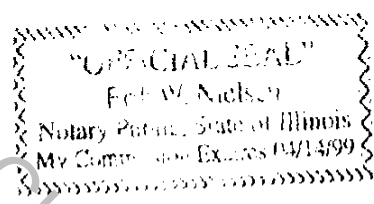 "OFFICIAL SEAL"
W. Nielsen
Notary Public, State of Illinois
My Commission Expires 04/14/99